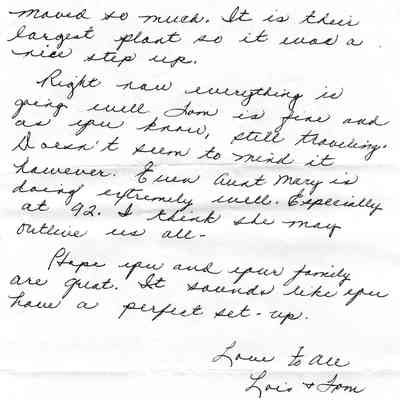 moved so much. It is their
largest plant so it was a
nice step up.
Right now everything is
going well Tom is fine and
as you know, still traveling.
Doesn't seem to mind it
however. Even Aunt Mary is
doing extremely well. Especially
at 92. I think she may
outlive us all-
Hope you and your family
are great. It sounds like you
have a perfect set-up.
Love to all
Lois + Tom